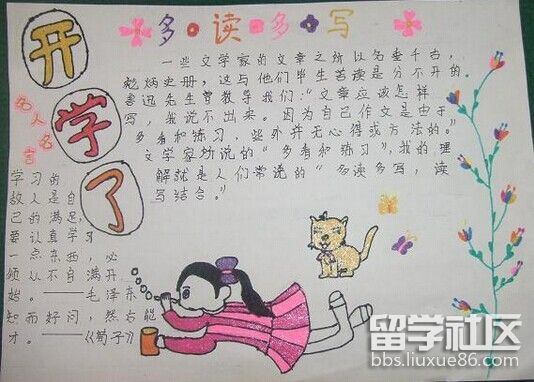 开
学
了
多读多写
一些文学家的文章之所以名垂千古，
彪炳史册，这与他们毕生苦读是分不开的。
鲁迅先生曾教导我们："文章应该怎样
写，我说不出来。因为自己作文是由于
多看和练习，此外并无心得或方法的。"
文学家所说的"多看和练习"，我的理
解就是人们常说的"多读多写，读
写结合。"
名人名言
学习的
敌人是自
己的满足，
要认真学习
一点东西，必
须以不自满开
始。——毛泽东
知而好问，然后能
才。——《荀子》
留学社区
bbs.liuxue86.com